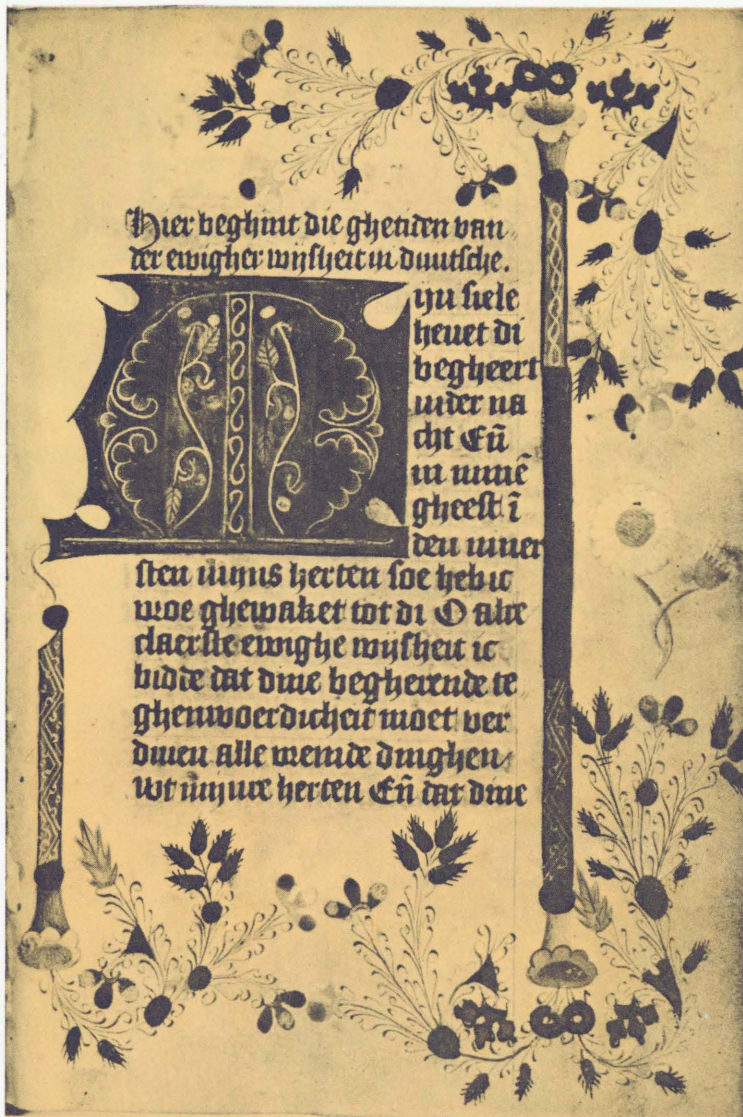 Hier beghint die ghetiden van
der ewigher wijsheit in duutsche.
M ijn siele
heuet di
begheert
inder na
cht Eñ
in minē
gheest ī
den inner
sten mijns herten soe heb ic
vroe ghewaket tot di O alre
claerste ewighe wijsheit ic
bidde dat dine begherende te
ghenwoerdicheit moet ver
driuen alle vremde dinghen
wt mijnre herten Eñ dat dine